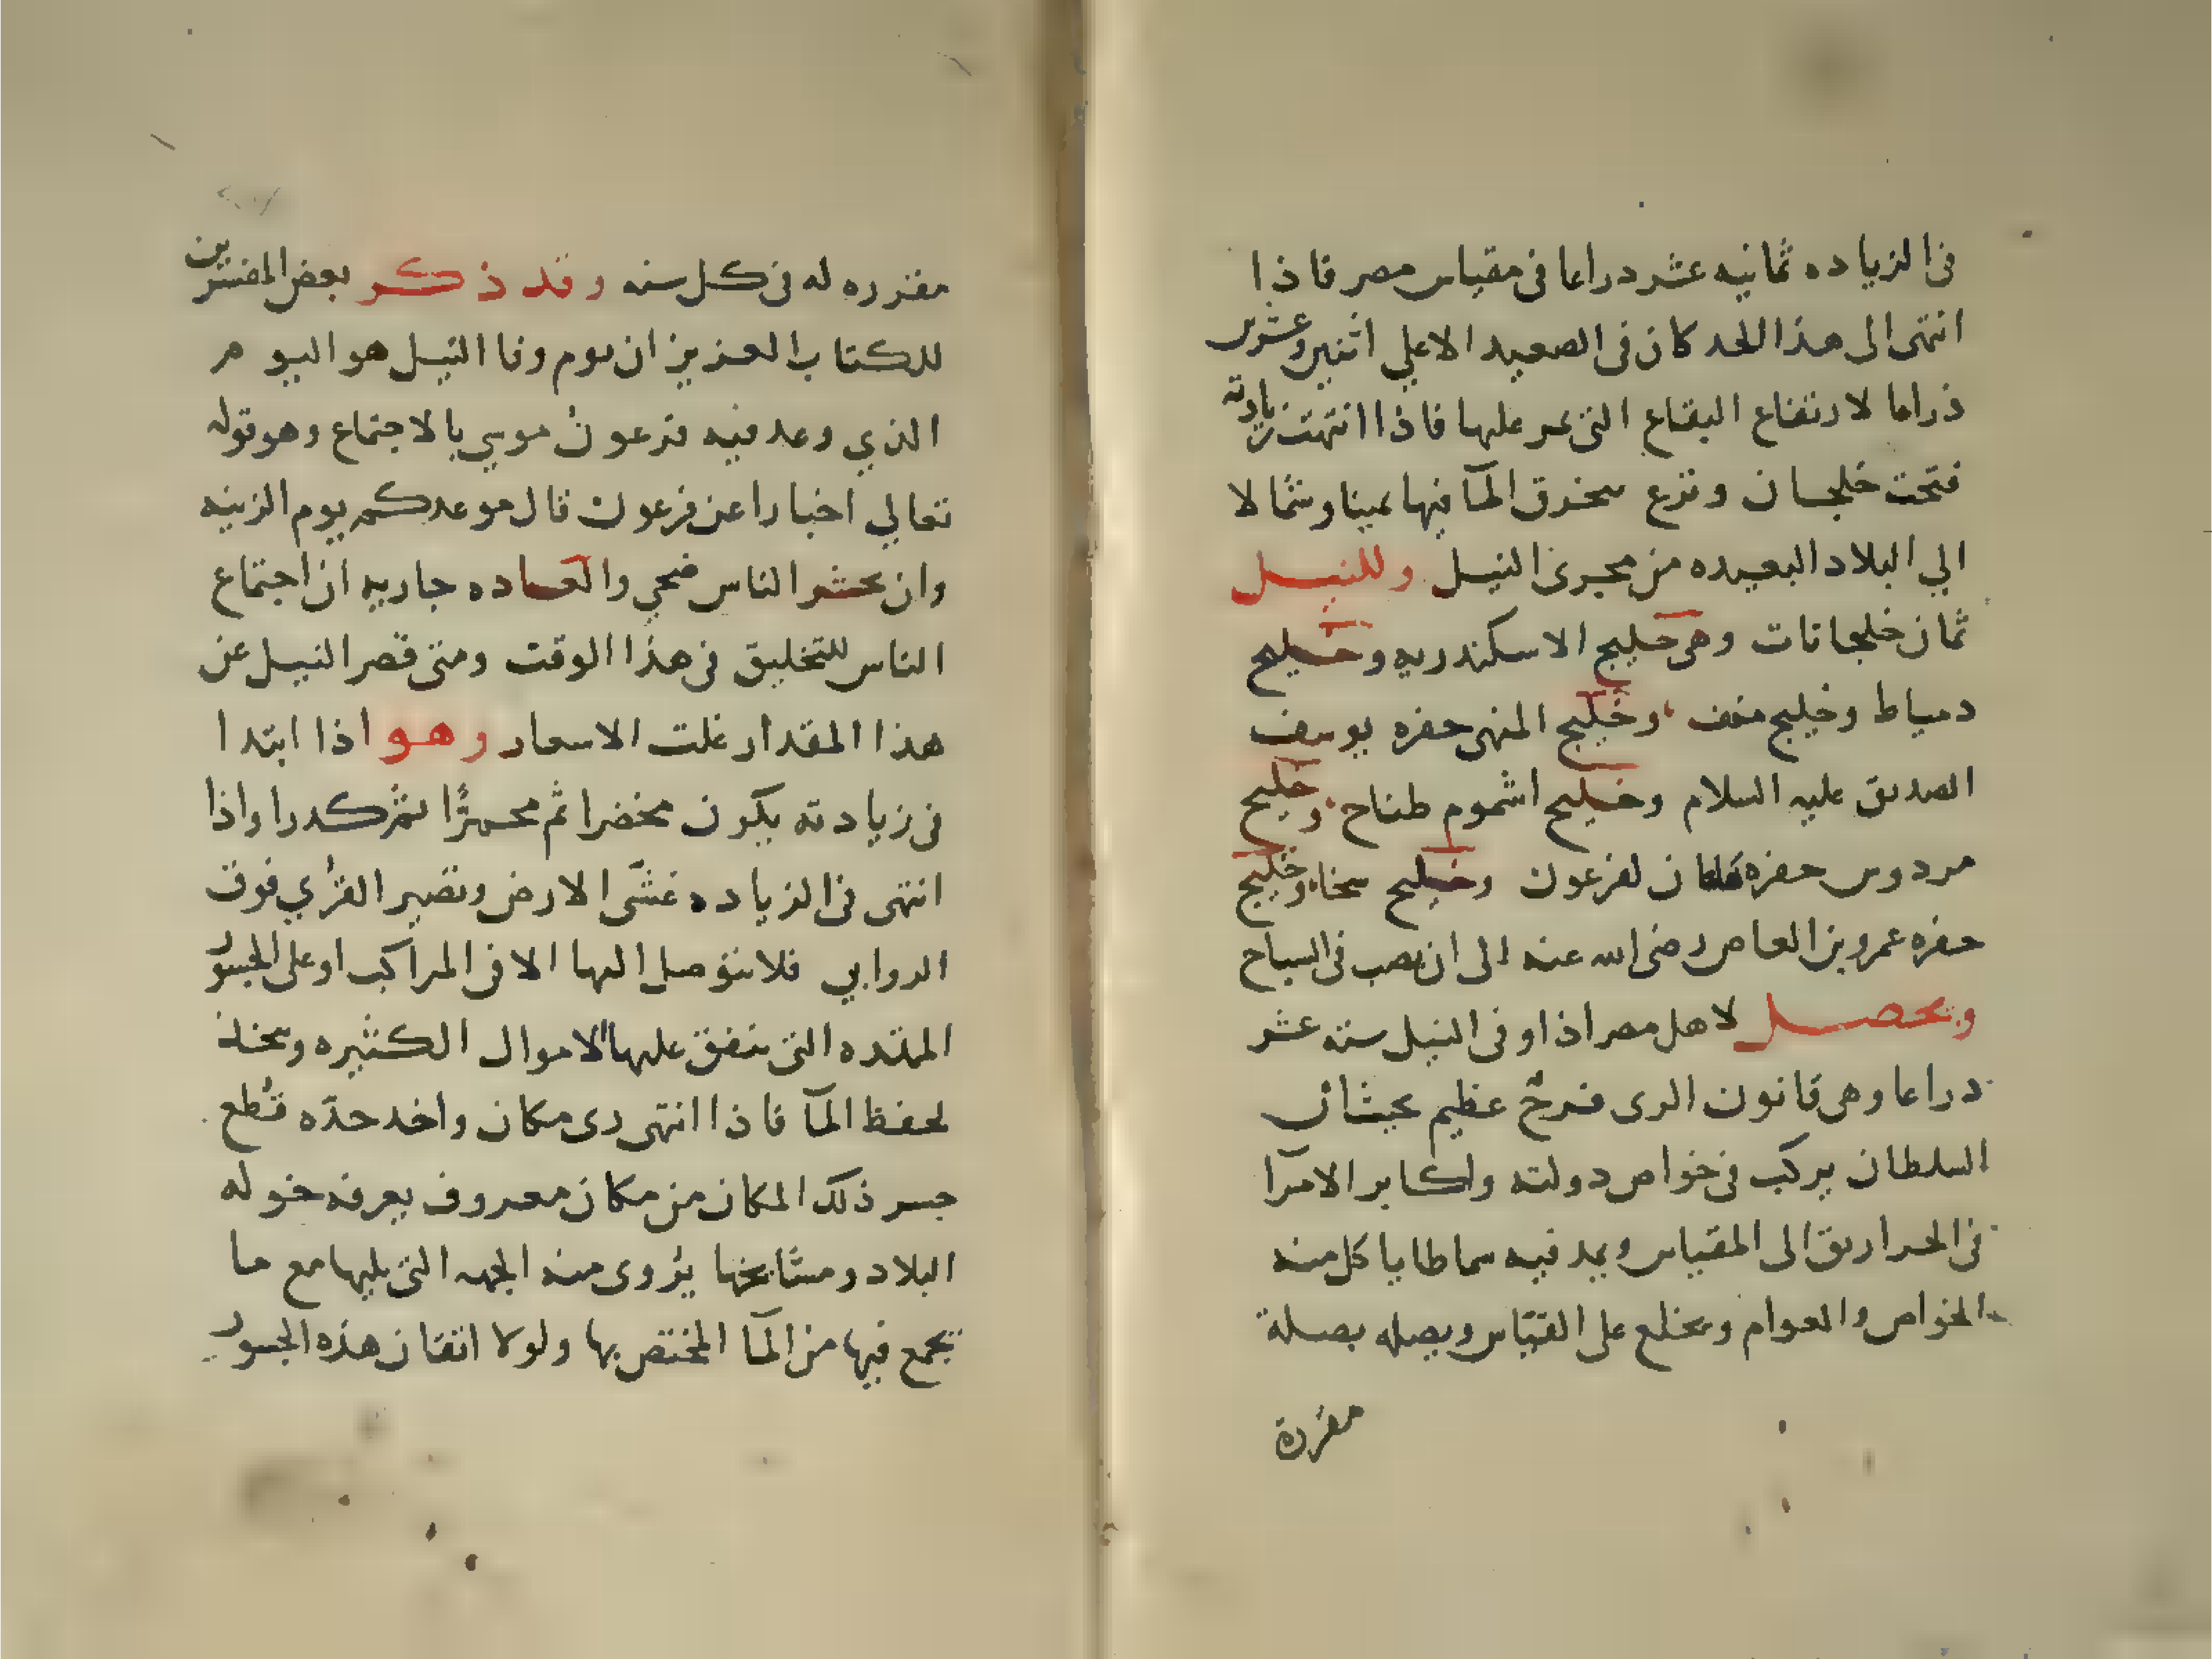 في الزياده ثمانيه عشر دراعا في مقياس مصر فاذا
انتهى الى هذا الحد كان في الصعيد الاعلي اثنين وعشرين
ذراعا لارتفاع البقاع التي عر عليها فاذا انتهت زيادته
فتحت خلجان وترع سخرق المآ فيها يمينا وشمالا
الي البلاد البعيده من مجرى النيل وللنيل
ثمان خلجانات وهي خليج الاسكندريه وخليج
دمياط وخليج منف وخليج المنهى حفره يوسف
الصديق عليه السلام وخليج اشموم طناح وخليج
سردوس حفره هامان لفرعون وخليج سخا وخليج
حفره عمرو بن العاص رضي الله عنه الى ان يصب في السباح
ويحصل لاهل مصر اذا اوفى النيل سته عشر
دراعا وهي قانون الرى فرحٌ عظيم بحيث ان
السلطان يركب في خواص دولته واكابر الامرآ
في الحراريق الى المقياس ويمد فيه سماطا ياكل منه
الخواص والعوام ويخلع على القيّاس ويصله بصلة
مقررة
مقرره له في كل سنه وقد ذكر بعض المفسرين
للكتاب العزيز ان يوم وفا النيل هو اليوم
الذي وعد فيه فرعون موسي بالاجتماع وهو قوله
تعالي اخبارا عن فرعون قال موعدكم يوم الزينه
وان يحشر الناس ضحي والعاده جاريه ان اجتماع
الناس للتخليق في هذا الوقت ومتى قصر النيل عن
هذا المقدار غلت الاسعار وهو اذا ابتدا
في زيادته يكون مخضرا ثم محمرًّا ثم كدرا واذا
انتهى في الزياده غشّى الارض وتصير القرُي فوق
الروابي فلا يتوصل اليها الا في المراكب او على الجسور
الممتده التي ينفق عليها الاموال الكثيره ويتخذ
لحفظ المآ فاذا انتهى رى مكان واخد حدّه قُطع
جسر ذلك المكان من مكان معروف يعرفه خوله
البلاد ومشايخها يرُوى منه الجهه التي يليها مع ما
يجمع فيها من المآ المختص بها ولولا اتقان هذه الجسور